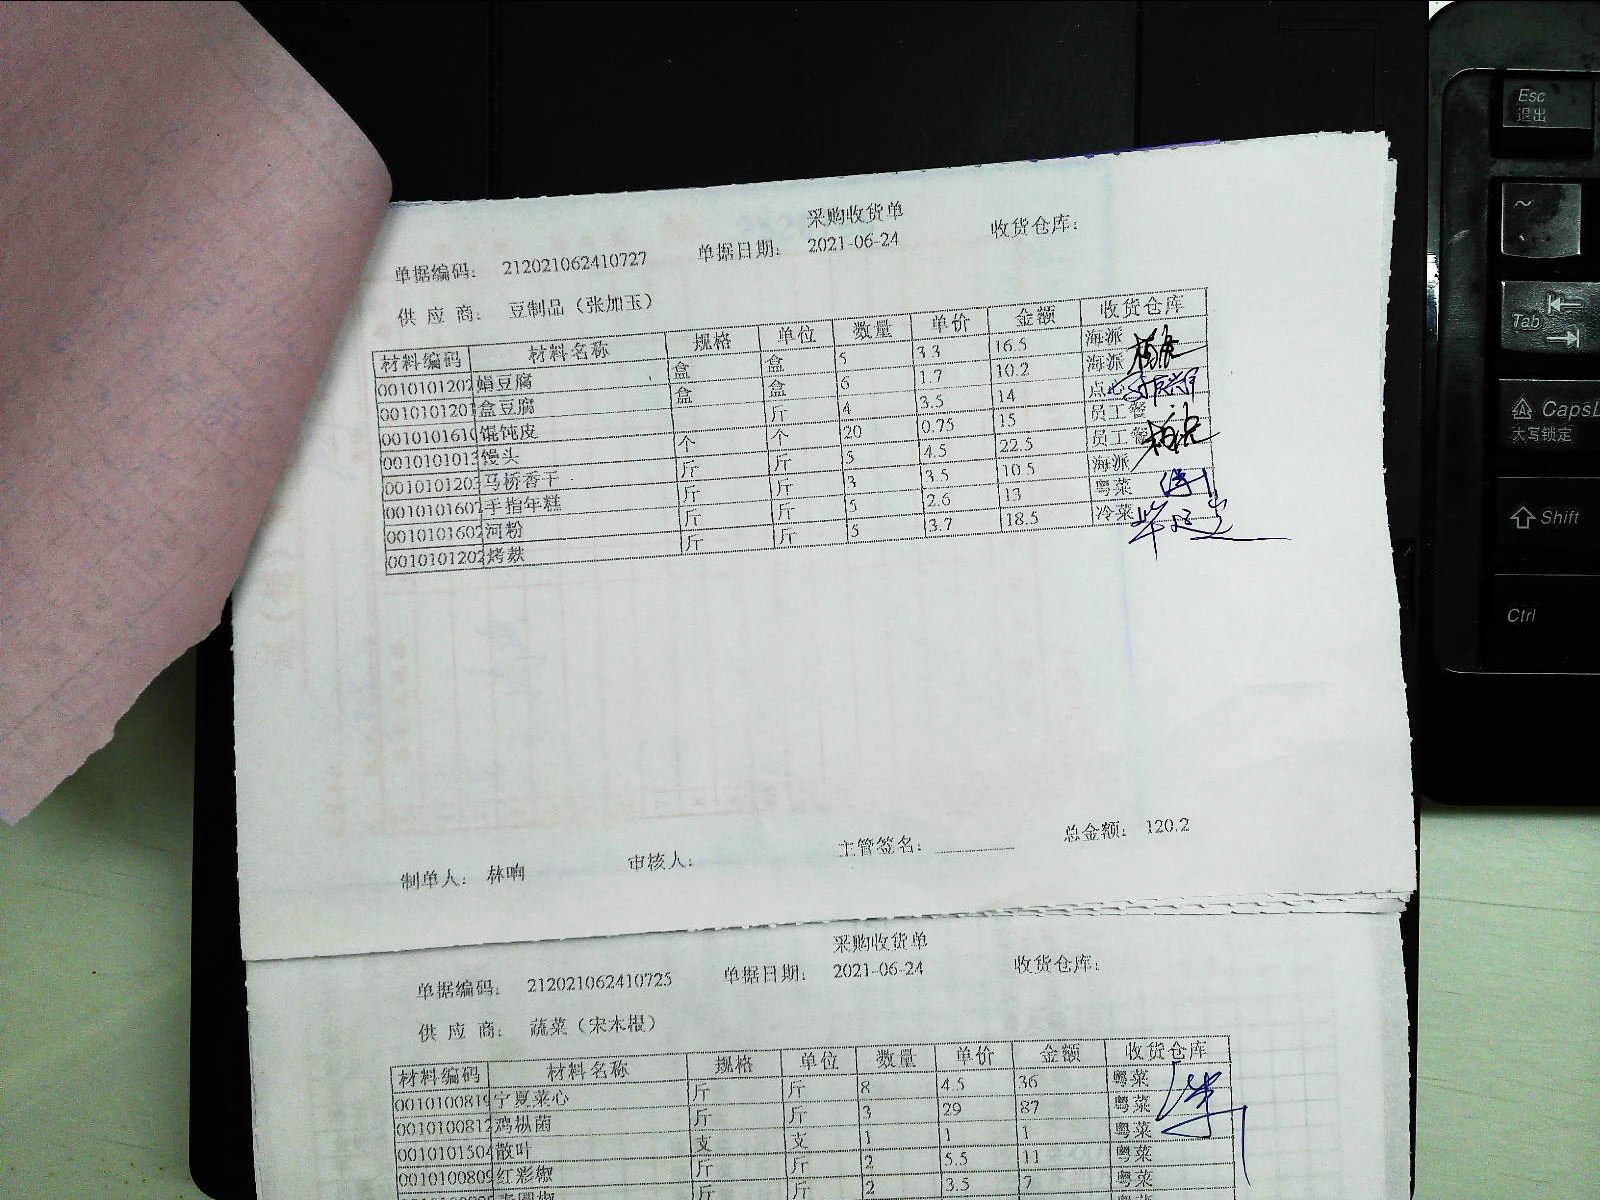 采购收货单
单据编码： 212021062410727 单据日期： 2021-06-24 收货仓库：
供 应 商： 豆制品（张加玉）
材料编码 材料名称 规格 单位 数量 单价 金额 收货仓库
0010101202 娟豆腐 盒 盒 5 3.3 16.5 海派
0010101201 盒豆腐 盒 盒 6 1.7 10.2 海派
0010101610 馄饨皮 斤 4 3.5 14 点心
0010101013 馒头 个 个 20 0.75 15 员工餐
0010101203 马桥香干 斤 斤 5 4.5 22.5 员工餐
0010101602 手指年糕 斤 斤 3 3.5 10.5 海派
0010101602 河粉 斤 斤 5 2.6 13 粤菜
0010101202 烤麸 斤 斤 5 3.7 18.5 冷菜
制单人： 林响 审核人： 主管签名： 总金额： 120.2
采购收货单
单据编码： 212021062410725 单据日期： 2021-06-24 收货仓库：
供 应 商： 蔬菜（宋木根）
材料编码 材料名称 规格 单位 数量 单价 金额 收货仓库
0010100819 宁夏菜心 斤 斤 8 4.5 36 粤菜
0010100812 鸡枞菌 斤 斤 3 29 87 粤菜
0010101504 散叶 支 支 1 1 1 粤菜
0010100809 红彩椒 斤 斤 2 5.5 11 粤菜
斤 斤 2 3.5 7 粤菜
Esc
退出
~
Tab
CapsL
大写锁定
Shift
Ctrl